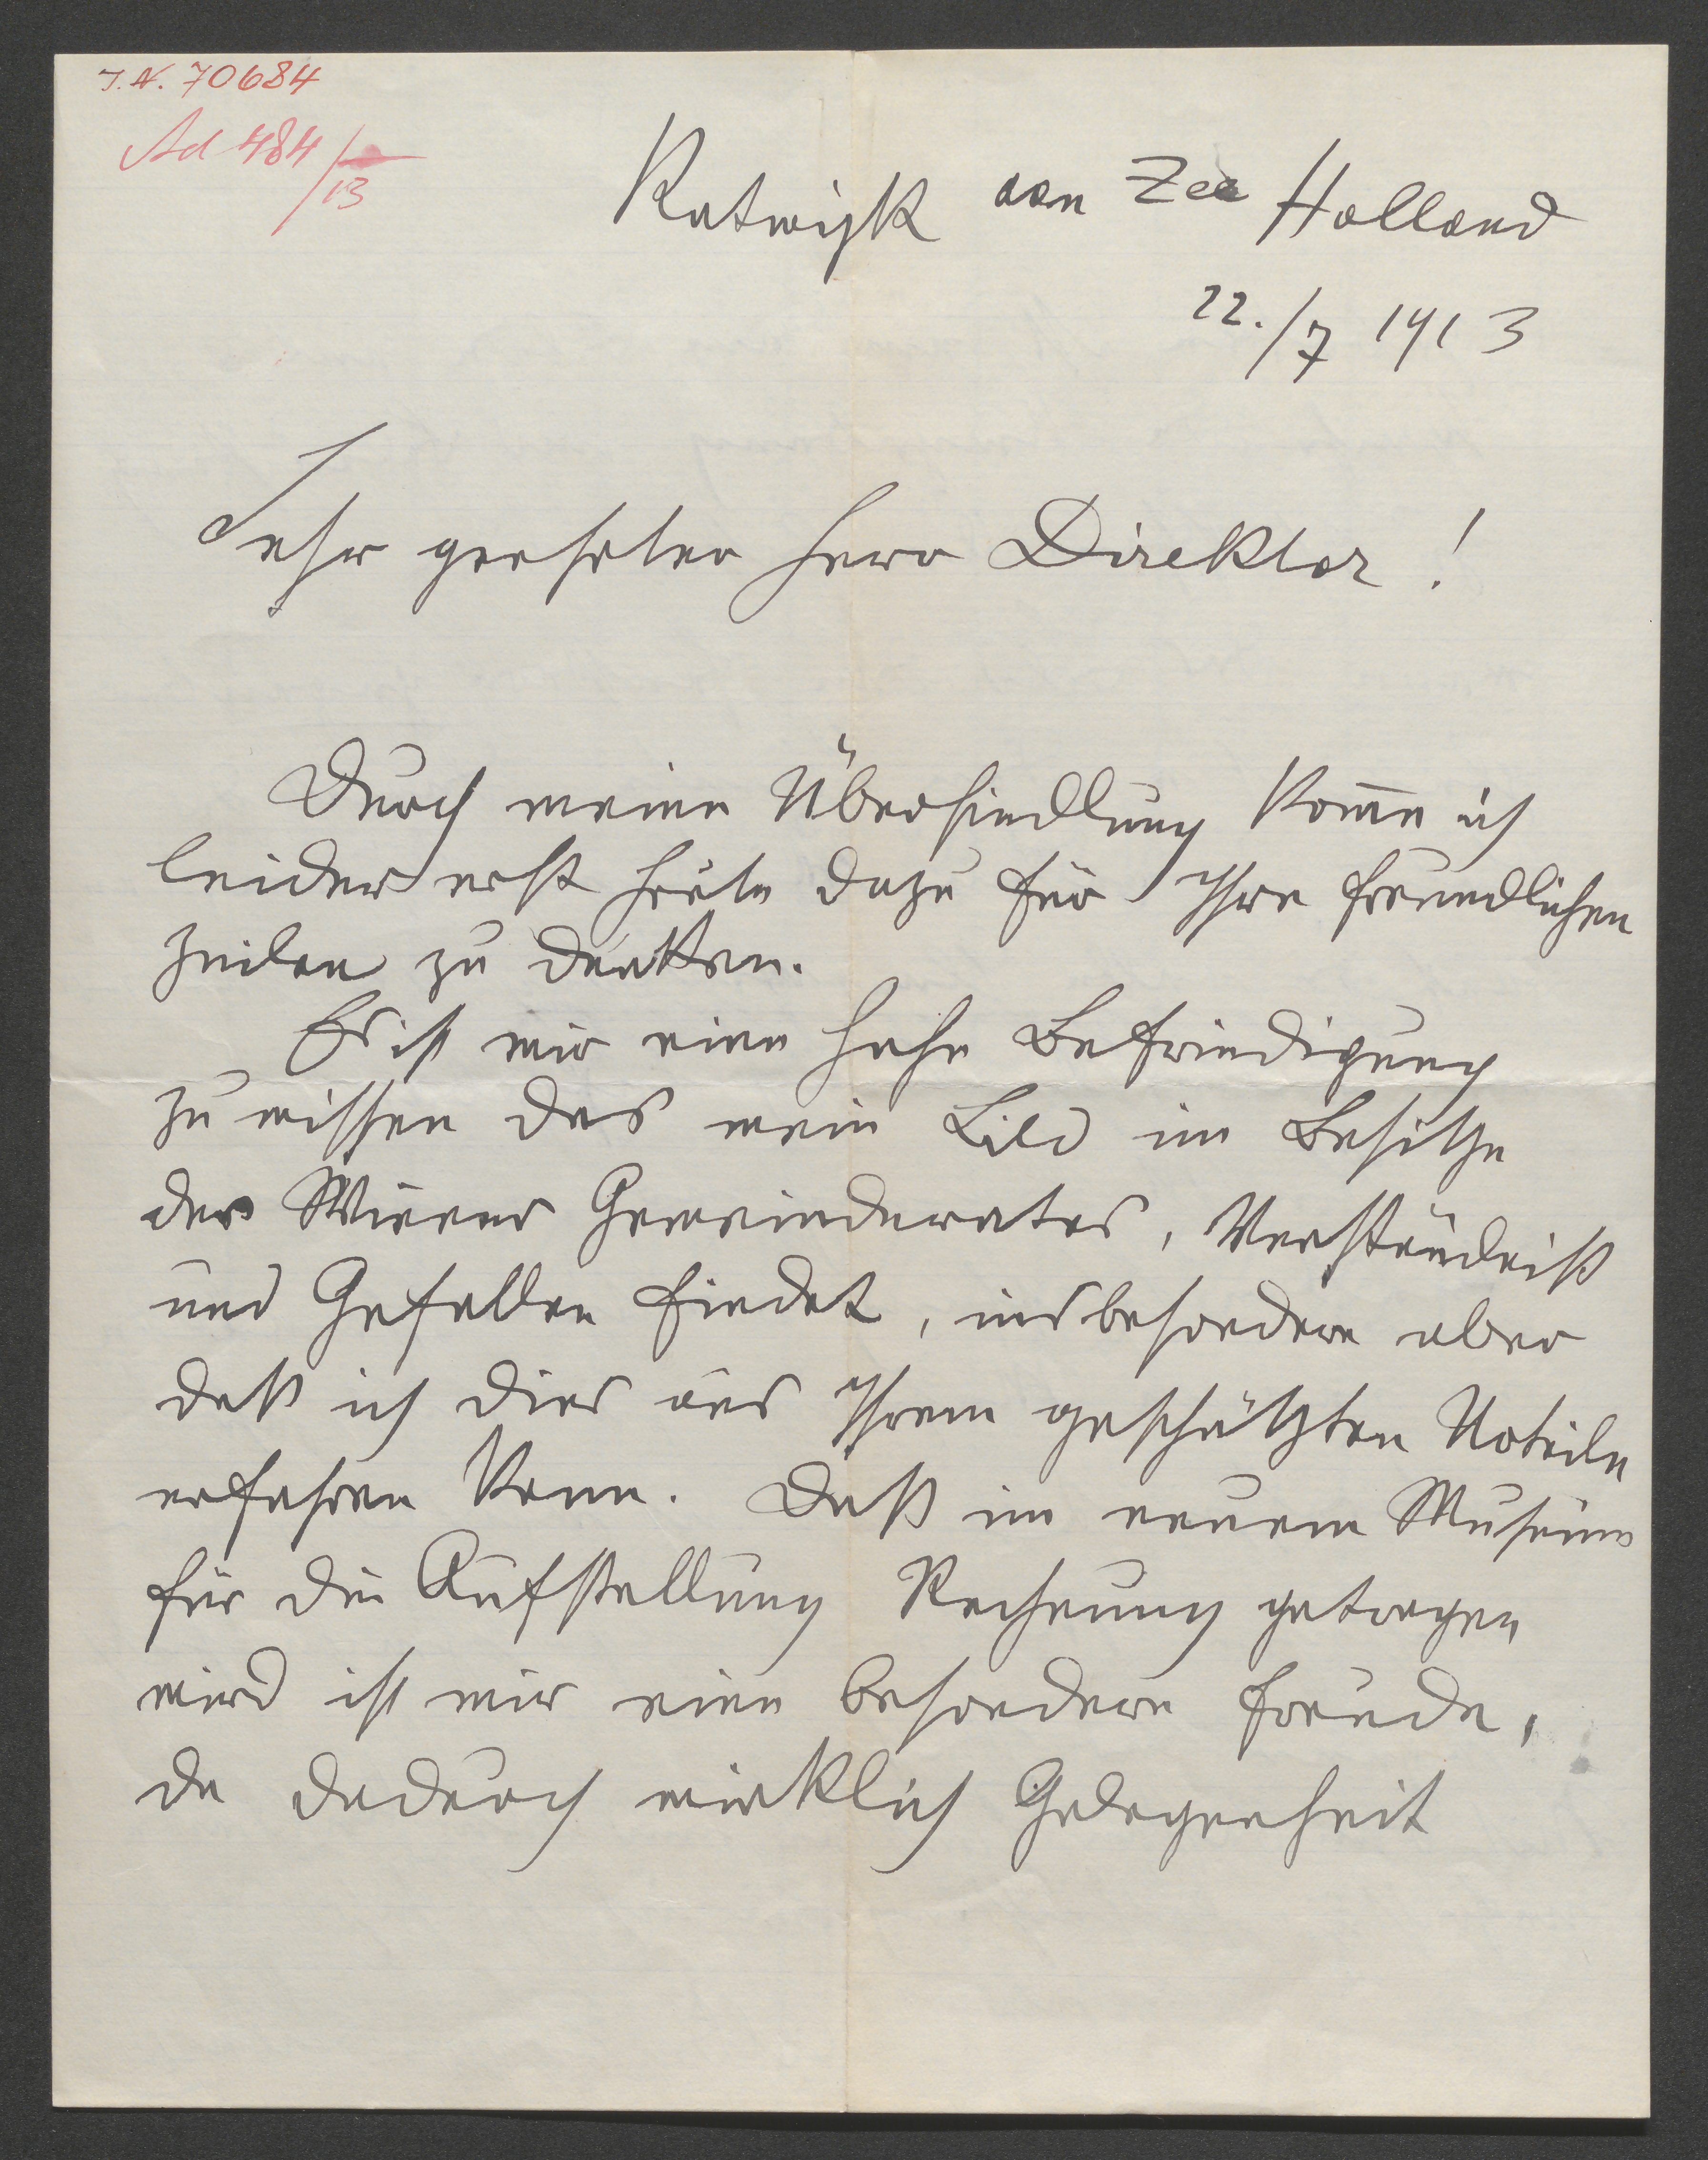 J.N. 70684
Ad 484/13
Katwijk aan Zee Holland
22./7 1913
Sehr geehrter Herr Direktor!
Durch meine Übersiedlung kom̅e ich
leider erst heute dazu für Ihre freundlichen
Zeilen zu danken.
Es ist mir eine hohe Befriedigung
zu wissen das mein Bild im Besitze
des Wiener Gemeinderates, Verständniß
und Gefallen findet, insbesondere aber
daß ich dies aus Ihrem geschätzten Urteile
erfahren kann. Daß im neuem Museum
für die Aufstellung Rechnung getragen
wird ist mir eine besondere Freude,
da dadurch wirklich Gelegenheit